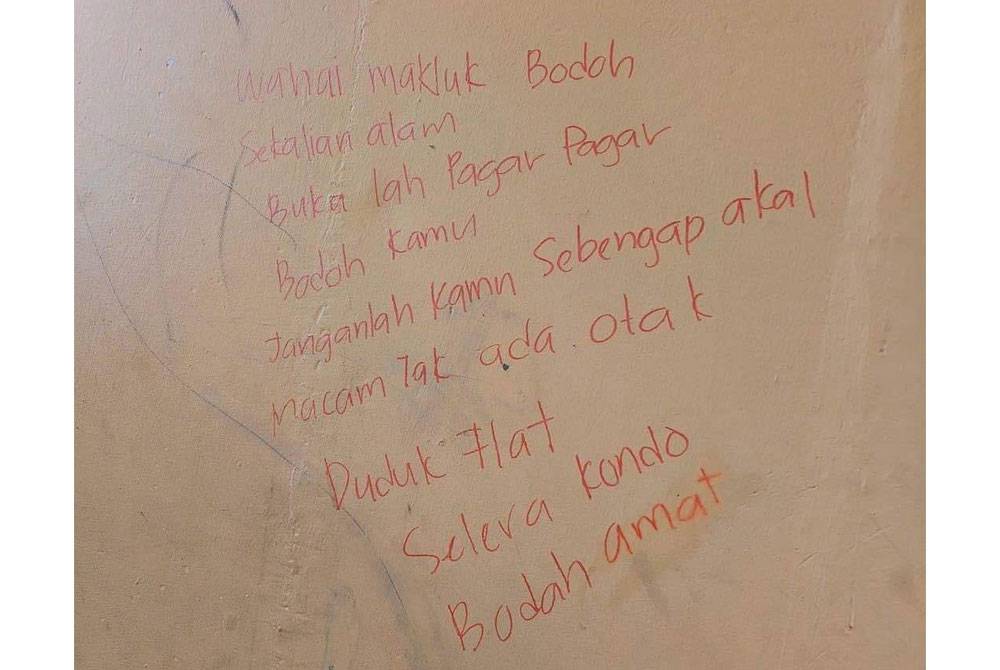 Wahai makluk Bodoh
Sekalian alam
Buka lah Pagar Pagar
Bodoh kamu
Janganlah kamu Sebengap akal
macam Tak ada otak
Duduk Flat
Selera kondo
Bodah amat